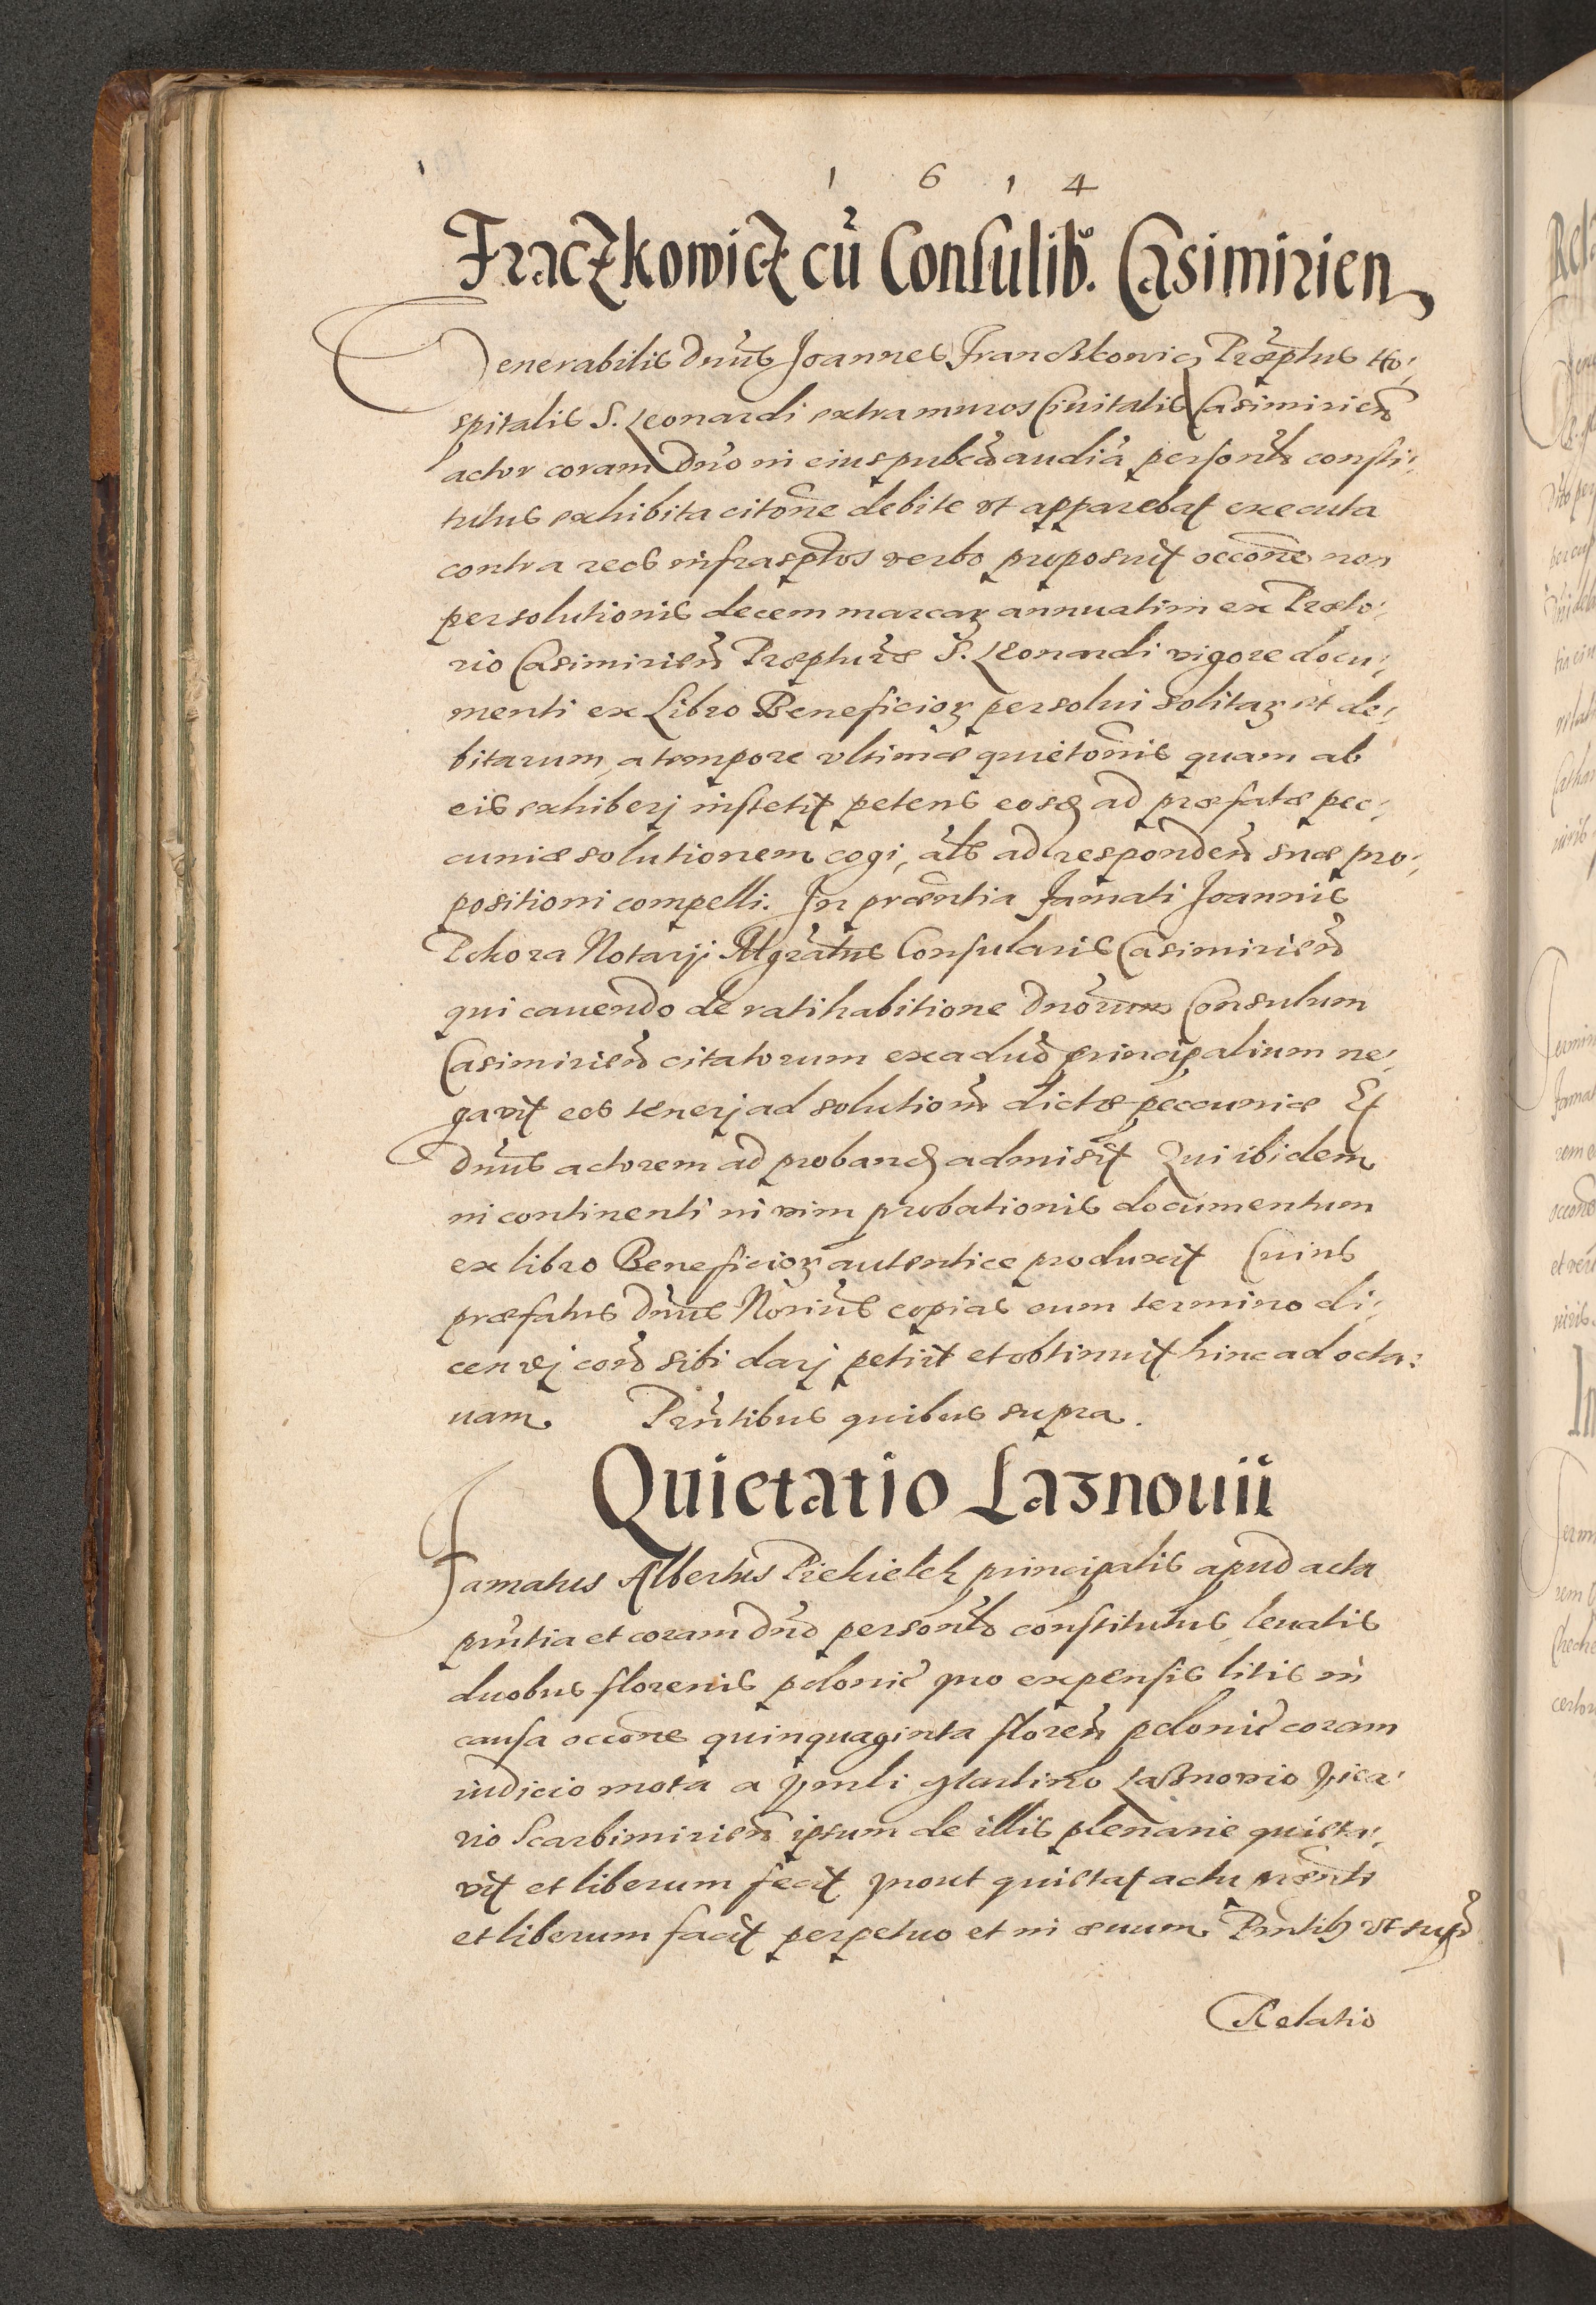 1 6 1 4
Fraczkowicz cũ Consulib. Casimirien
Venerabilis Dnus Joannes Franczkowicz Præptus Ho:
spitalis S. Leonardi extra muros Ciuitatis Casimirien
actor coram Dno in eius pubca audia personlr consti:
tutus exhibita citone debite vt apparebat executa
contra reos infrasptos verbo proposuit occone non
persolutionis decem marcarꝝ annuatim ex Præto:
rio Casimirien Præpturæ S. Leonardi vigore docu:
menti ex Libro Beneficioꝝ persolui solitaꝝ et de:
bitarum, a tempore vltimæ quietonis quam ab
eis exhiberj institit petens eosdem ad præfatæ pec:
cuniæ solutionem cogi, als ad responden suæ pro:
positioni compelli. In præntia famati Joannis
Pekora Notarij Mgratus Consularis Casimirien
qui cauendo de ratihabitione Dnorum Consulum
Casimirien citatorum ex aduo principalium ne:
gavit eos tenerj ad solutionem dictæ peccuniæ Et
Dnus actorem ad proband admisit Qui ibidem
in continenti in vim probationis documentum
ex libro Beneficioꝝ autentice produxit Cuius
præfatus Dnus Norius copias cum termino di:
cen sibi darj petiit et obtinuit hinc ad octa:
uam. Prntibus quibus supra.
Quietatio Laznouii
Famatus Albertus Piekielek principalis apud acta
prntia et coram Dno personlr constitutus leuatis
duobus florenis polonic pro expensis litis in
causa occone quinquaginta floren polonic coram
iudicio mota a Vnbli Martino Laznowio Vica:
rio Scarbimirien ipsum de illis plenarie quieta:
vit et liberum fecit prout quietat actu præsnti
et liberum facit perpetuo et in æuum. Prntibꝫ vt supra
Relatio